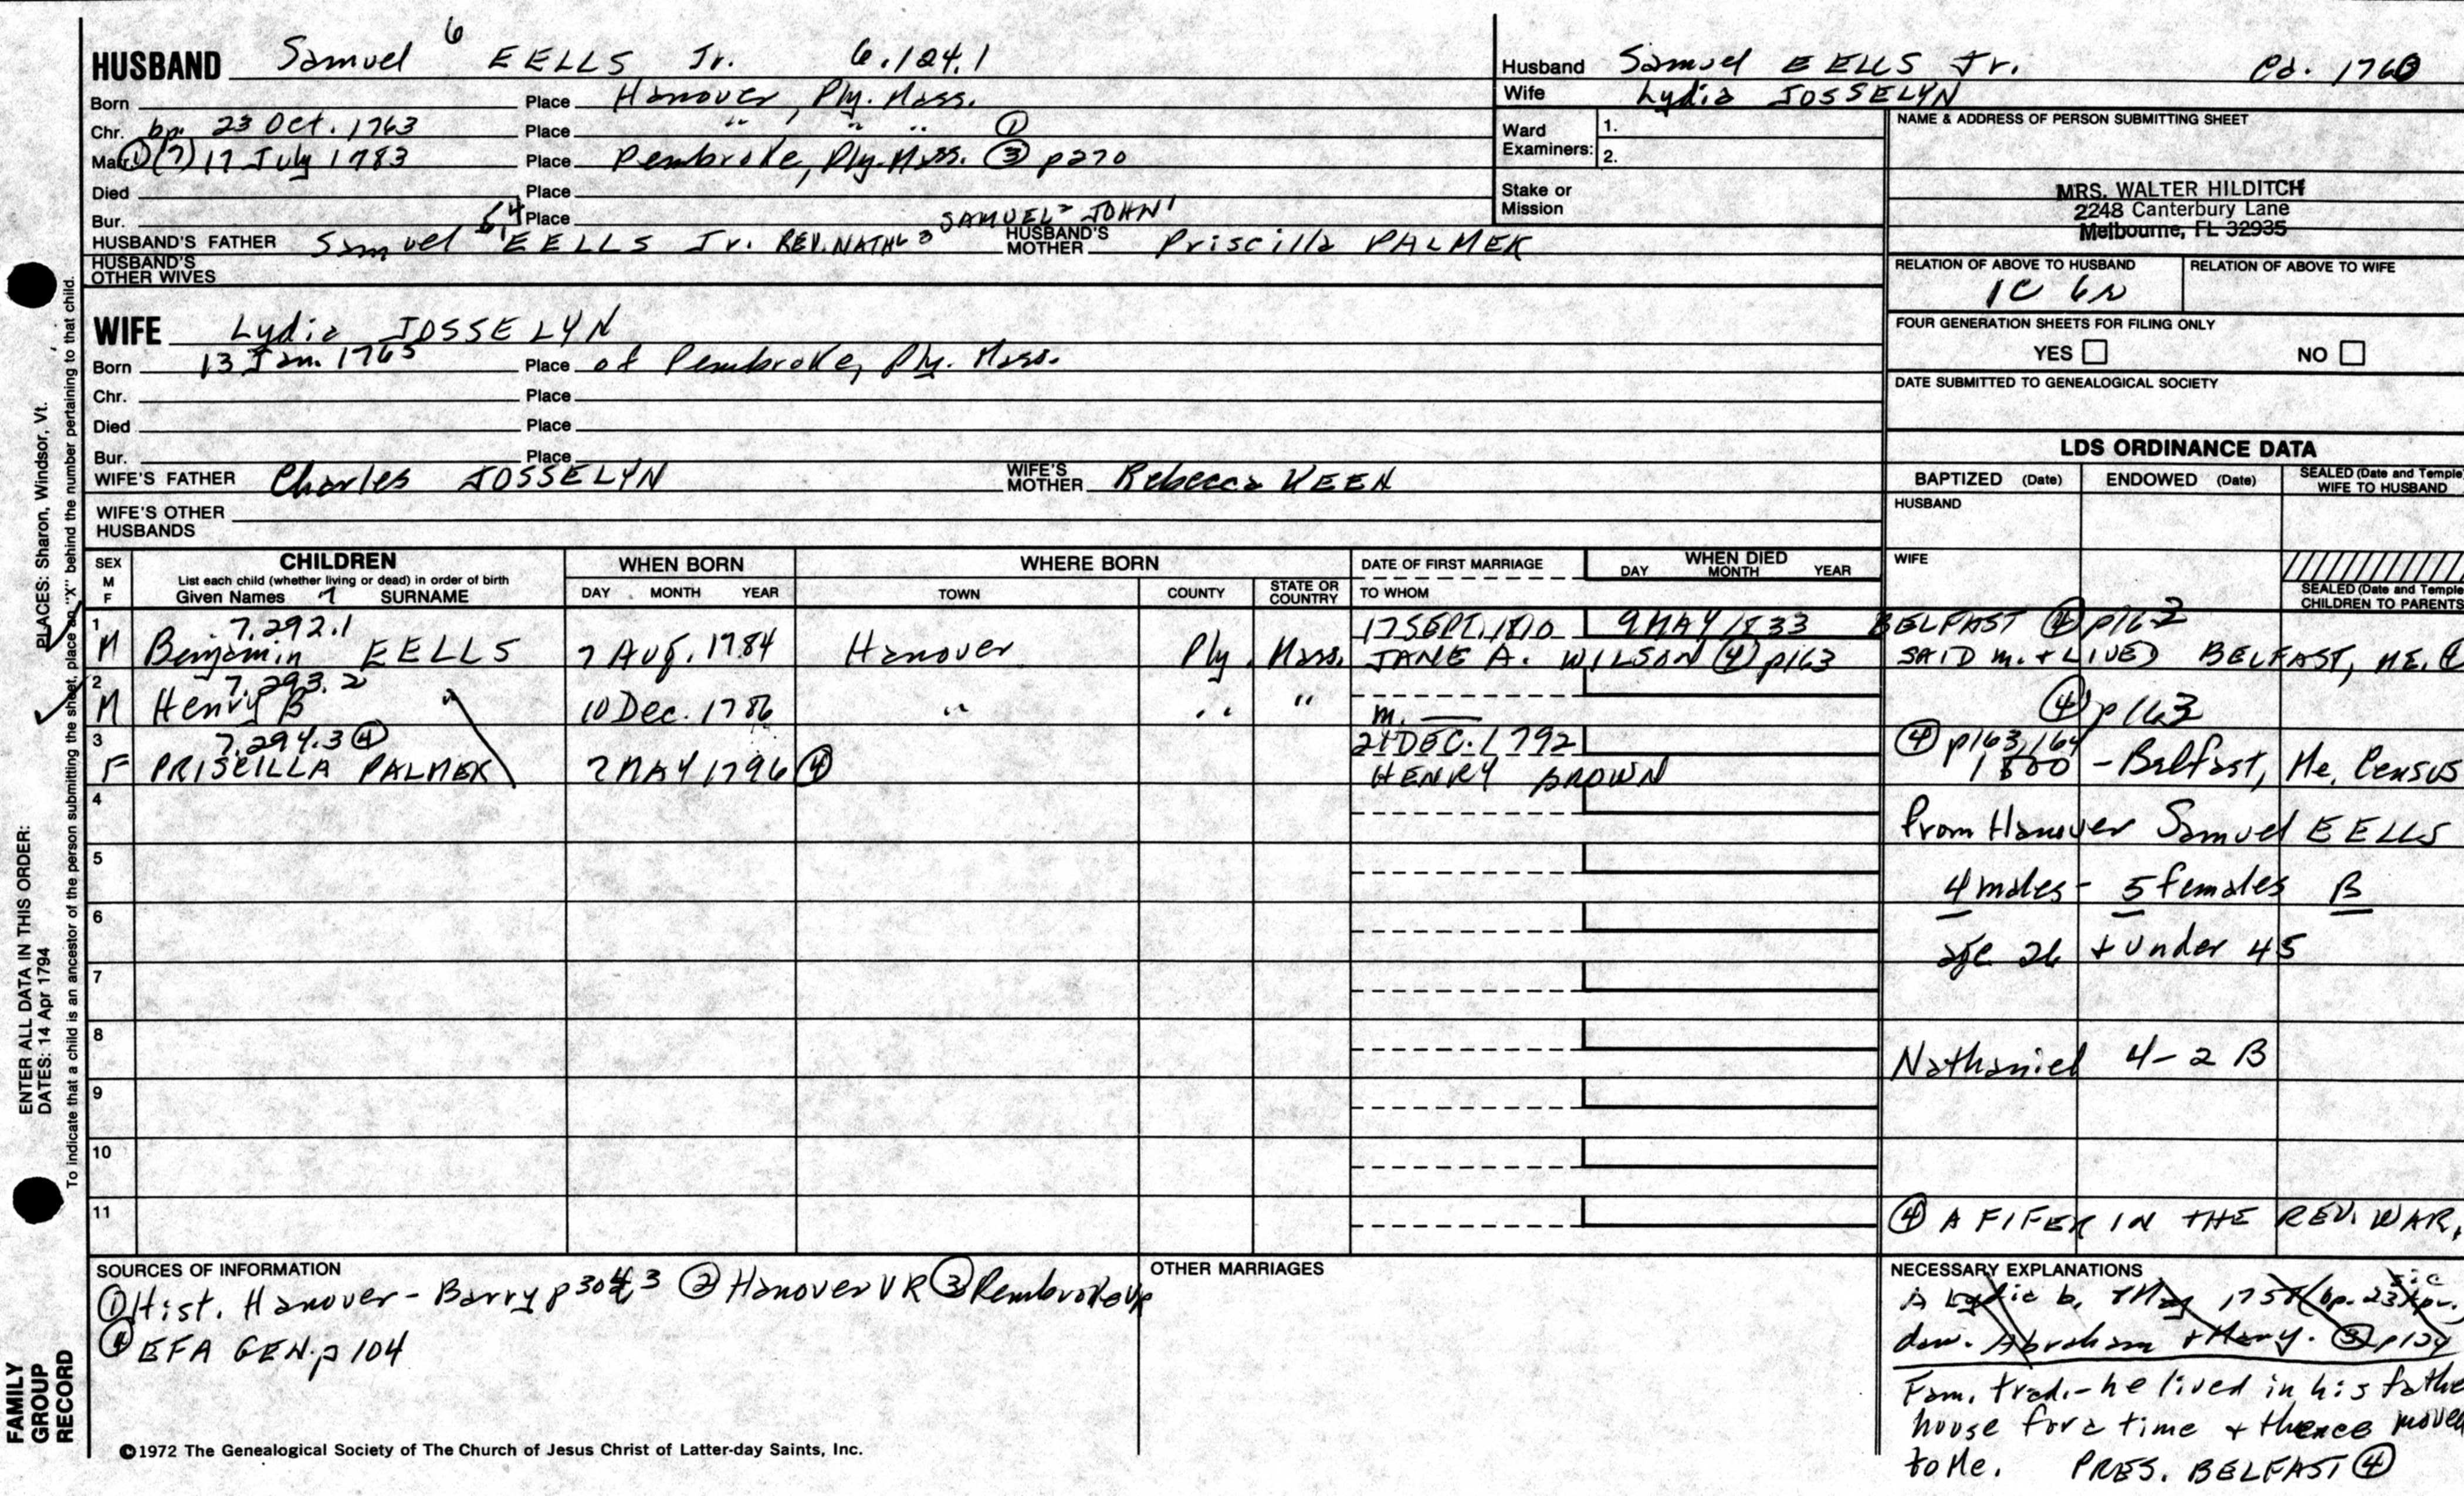 HUSBAND Samuel 6 EELLS Jr. 6.124.1
Born Place Hanover, Ply. Mass.
Chr. bp. 23 Oct. 1763 Place " " " ①
Marr. ① (7) 17 July 1783 Place Pembroke, Ply. Mass. ③ p270
Died Place
Bur. Place SAMUEL 2 JOHN 1
HUSBAND'S FATHER Samuel EELLS Jr. REV. NATHL 3 HUSBAND'S MOTHER Priscilla PALMER
HUSBAND'S OTHER WIVES
WIFE Lydia JOSSELYN
Born 13 Jan. 1765 Place of Pembroke, Ply. Mass.
Chr. Place
Died Place
Bur. Place
WIFE'S FATHER Charles JOSSELYN WIFE'S MOTHER Rebecca KEEN
WIFE'S OTHER HUSBANDS
Husband Samuel EELLS Jr. Cd. 1760
Wife Lydia JOSSELYN
Ward Examiners: 1.
2.
Stake or Mission
NAME & ADDRESS OF PERSON SUBMITTING SHEET
MRS. WALTER HILDITCH
2248 Canterbury Lane
Melbourne, FL 32935
RELATION OF ABOVE TO HUSBAND RELATION OF ABOVE TO WIFE
1C 6R
FOUR GENERATION SHEETS FOR FILING ONLY
YES NO
DATE SUBMITTED TO GENEALOGICAL SOCIETY
LDS ORDINANCE DATA
BAPTIZED (Date) ENDOWED (Date) SEALED (Date and Temple) WIFE TO HUSBAND
HUSBAND
WIFE
SEALED (Date and Temple) CHILDREN TO PARENTS
SEX M F CHILDREN WHEN BORN WHERE BORN DATE OF FIRST MARRIAGE WHEN DIED
List each child (whether living or dead) in order of birth
Given Names 7 SURNAME DAY MONTH YEAR TOWN COUNTY STATE OR COUNTRY TO WHOM DAY MONTH YEAR
1 7.292.1 17 SEPT. 1810 9 MAY 1833 BELFAST ④ p162
M Benjamin EELLS 7 Aug. 1784 Hanover Ply. Mass. JANE A. WILSON ④ p163 SAID m. + LIVED BELFAST, ME. ④
2 7.293.2
M Henry B " 10 Dec. 1786 " " " m. ④ p163
3 7.294.3 ④ 21 DEC. 1792 ④ p163,164
F PRISCILLA PALMER 2 MAY 1796 ④ HENRY BROWN 1800 - Belfast, Me. Census
4
From Hanover Samuel EELLS
5
4 males - 5 females B
6
age 26 + under 45
7
8
Nathaniel 4-2 B
9
10
11 ④ A FIFER IN THE REV. WAR.
SOURCES OF INFORMATION
① Hist. Hanover - Barry p304,3 ② Hanover VR ③ Pembroke VR
④ EFA GEN. p 104
OTHER MARRIAGES
NECESSARY EXPLANATIONS sic
is Lydia b. 8 May 175 (bp. 23 Apr.
dau. Abraham + Mary. ③ p124
Fam. trad. - he lived in his fathe
house for a time + thence moved
to Me. PRES. BELFAST ④
©1972 The Genealogical Society of The Church of Jesus Christ of Latter-day Saints, Inc.
FAMILY GROUP RECORD
ENTER ALL DATA IN THIS ORDER:
DATES: 14 Apr 1794
PLACES: Sharon, Windsor, Vt.
To indicate that a child is an ancestor of the person submitting the sheet, place an "X" behind the number pertaining to that child.